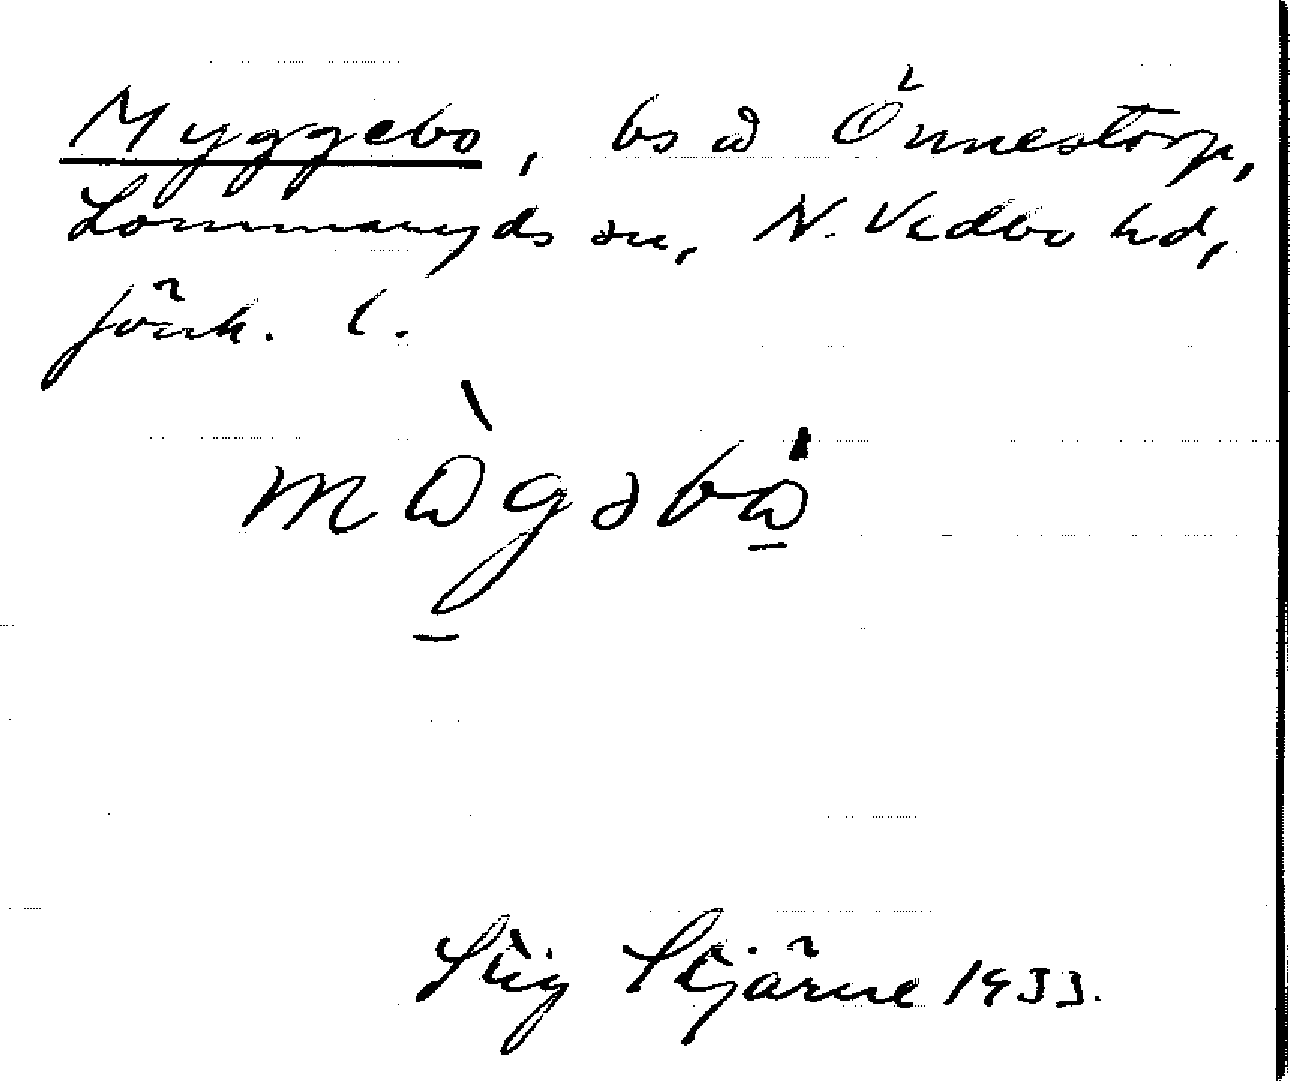 Myggebo, bs å Önnestorp,
Lommaryds sn, N. Vedbo hd,
Jönk. l.
Stig Stjärne 1933.